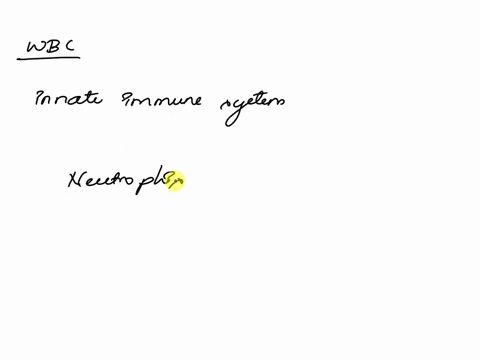 WBC
innate immune system
Neutrophi